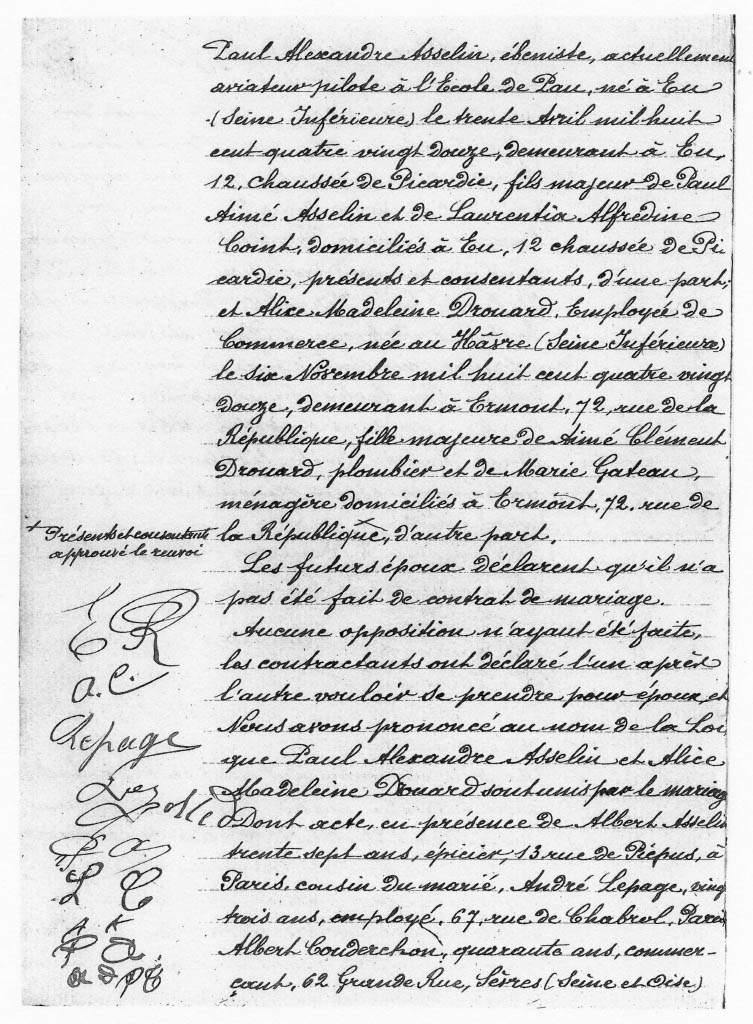 Paul Alexandre Asselin, ébeniste, actuellement
aviateur pilote à l'Ecole de Pau, né à Eu
(Seine Inférieure) le trente Avril mil huit
cent quatre vingt douze, demeurant à Eu,
12, chaussée de Picardie, fils majeur de Paul
Aimé Asselin et de Laurentia Alfrédine
Coint, domiciliés à Eu, 12 chaussée de Pi
cardie, présents et consentants, d'une part;
et Alice Madeleine Drouard, Employée de
Commerce, née au Hâvre (Seine Inférieure)
le six Novembre mil huit cent quatre vingt
douze, demeurant à Ermont, 72, rue de la
République, fille majeure de Aimé Clément
Drouard, plombier et de Marie Gateau,
ménagère domiciliés à Ermont, 72, rue de
la République, d'autre part.
Présents et consentants
approuvé le renvoi
Les futurs époux déclarent qu'il n'a
pas été fait de contrat de mariage.
Aucune opposition n'ayant été faite,
les contractants ont déclaré l'un après
l'autre vouloir se prendre pour époux, et
Nous avons prononcé au nom de la Loi
que Paul Alexandre Asselin et Alice
Madeleine Drouard sont unis par le mariage
Dont acte, en présence de Albert Asselin
trente sept ans, épicier, 13 rue de Picpus, à
Paris, cousin du marié, André Lepage, vingt
trois ans, employé, 67, rue de Chabrol, Paris
Albert Couderchon, quarante ans, commer-
çant, 62 Grande Rue, Sèvres (Seine et Oise)
E R
a. C.
Lepage